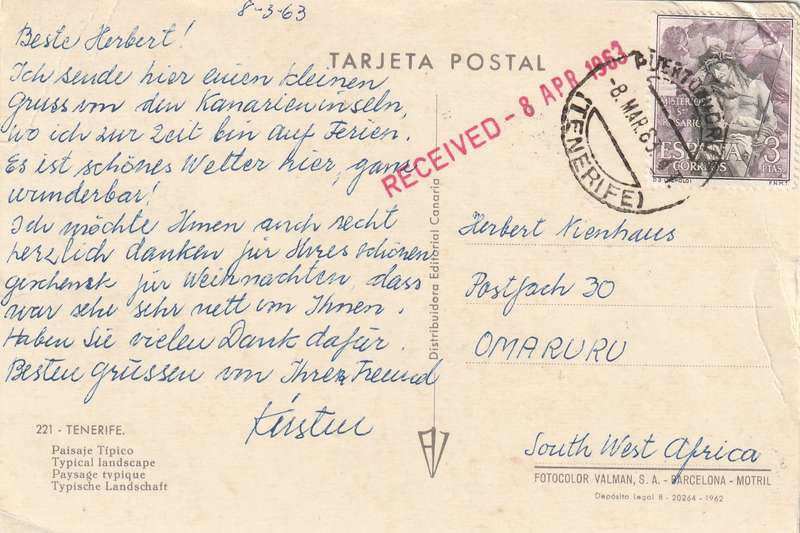 8-3-63
Beste Herbert!
Ich sende hier einen kleinen
Gruss von den Kanarieninseln,
wo ich zur Zeit bin auf Ferien.
Es ist schönes Wetter hier, ganz
wunderbar!
Ich möchte Ihnen auch recht
herzlich danken für Ihres schönen
geschenk für Weihnachten, dass
war sehr sehr nett von Ihnen.
Haben Sie vielen Dank dafür.
Besten grüssen von Ihrer Freund
Kersten
221 - TENERIFE.
Paisaje Típico
Typical landscape
Paysage typique
Typische Landschaft
TARJETA POSTAL
RECEIVED - 8 APR 1963
-8. MAR. 63
(TENERIFE)
MISTERIOS
ESPAÑA 3
CORREOS PTAS
Distribuidora Editorial Canaria
Herbert Nienhaus
Postfach 30
OMARURU
South West Africa
FOTOCOLOR VALMAN, S. A. - BARCELONA - MOTRIL
Depósito Legal B - 20264 - 1962